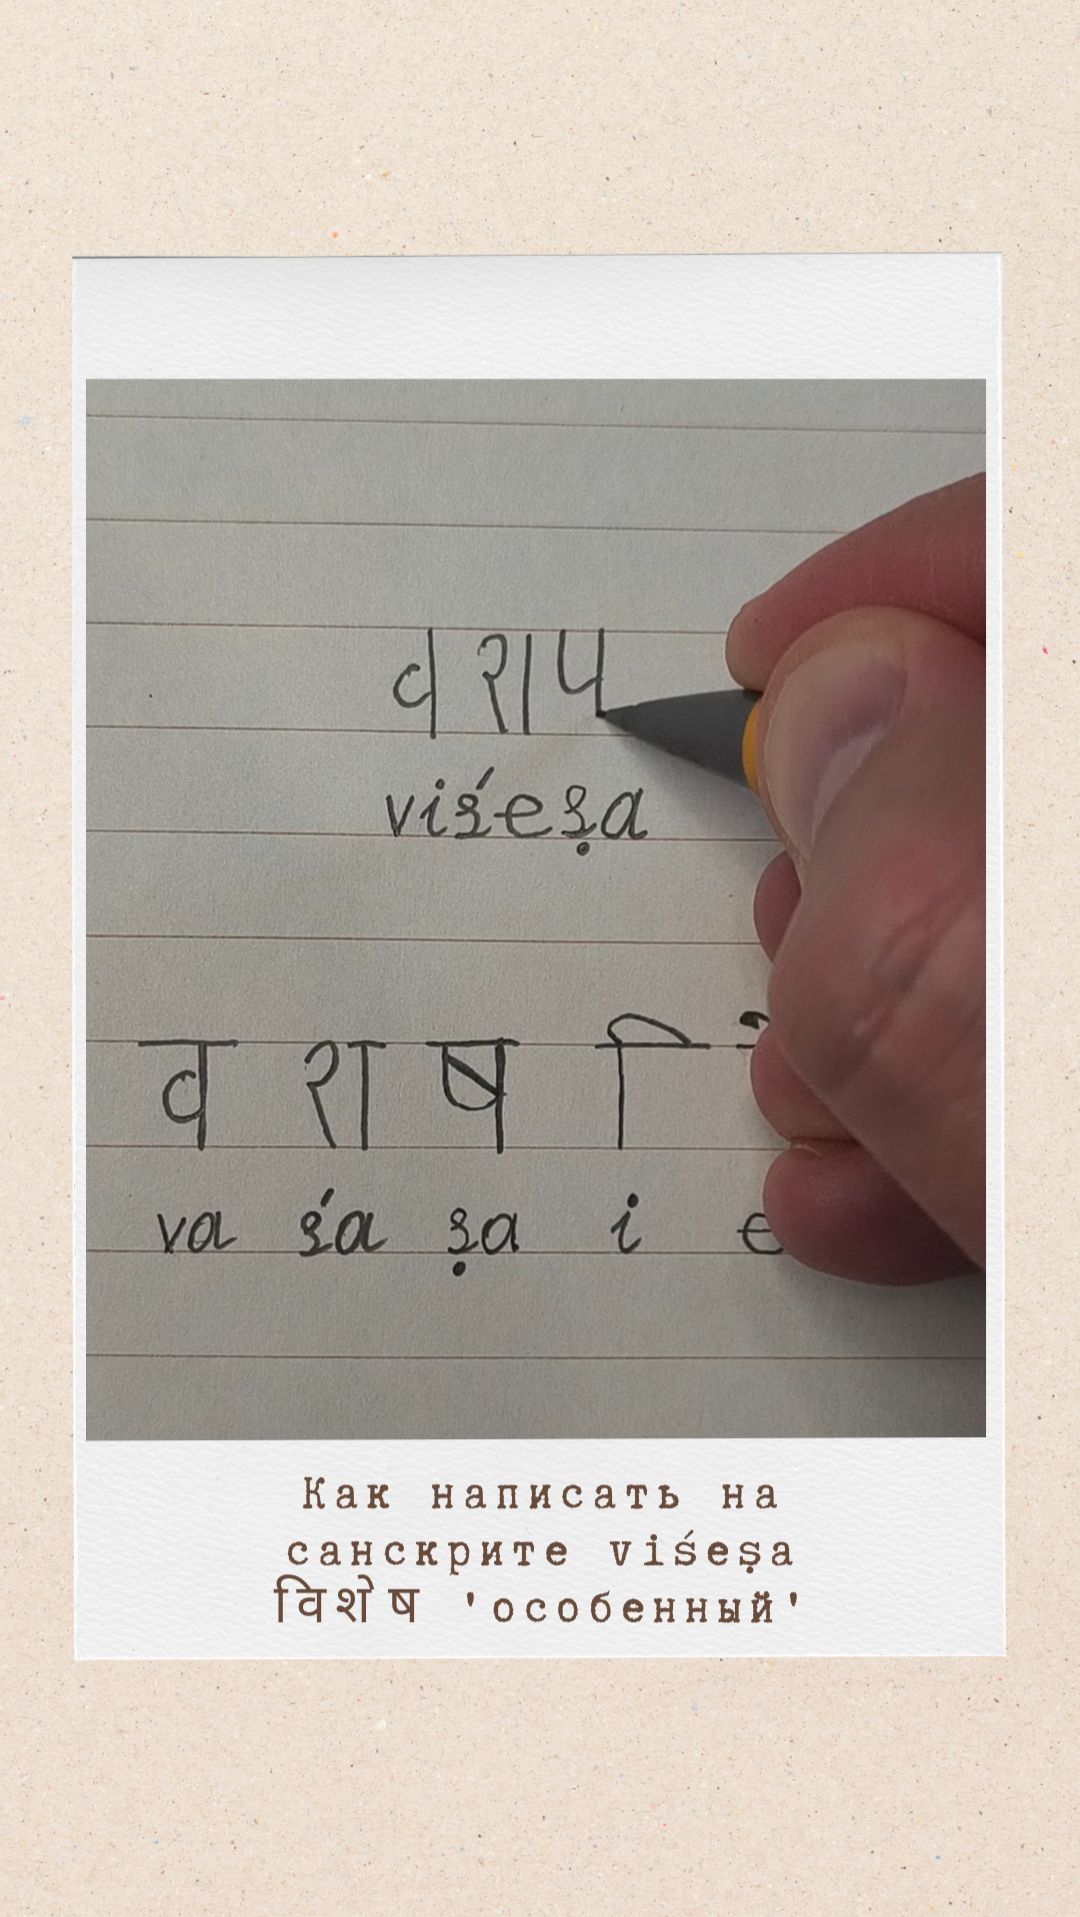 व श प
viśeṣa
व श ष ि े
va śa ṣa i e
Как написать на
санскрите viśeṣa
विशेष 'особенный'